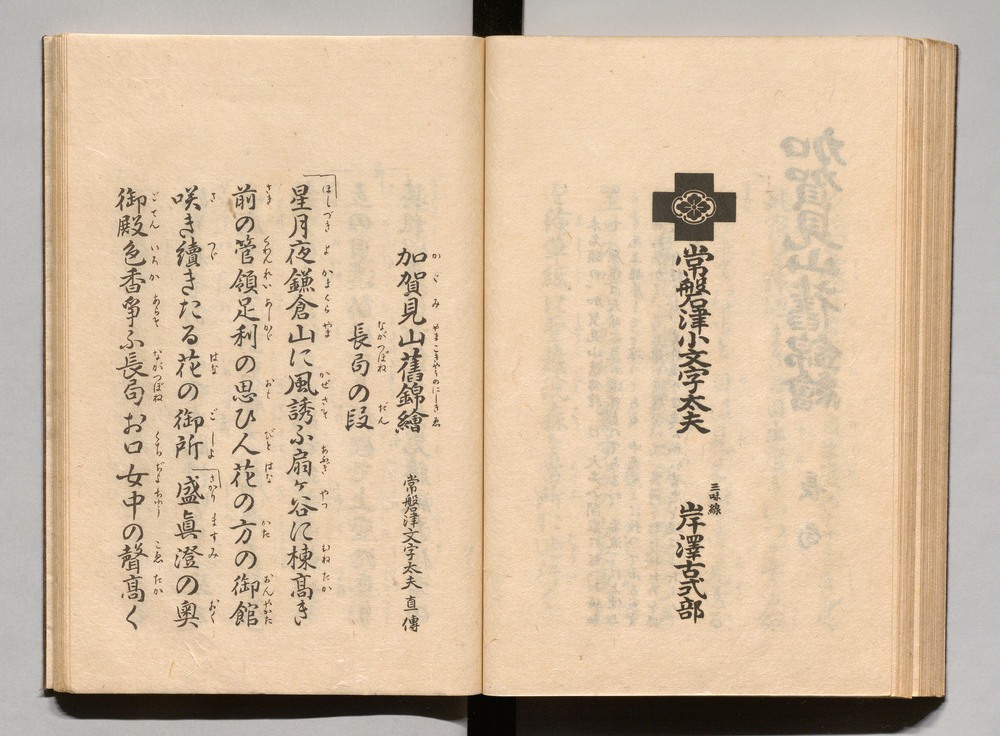 常磐津小文字太夫
三味線
岸澤古式部
加賀見山舊錦繪
長局の段
常磐津文字太夫直傳
星月夜鎌倉山に風誘ふ扇ヶ谷に棟高き
前の管領足利の思ひ人花の方の御館
咲き續きたる花の御所盛眞澄の奥
御殿色香爭ふ長局お口女中の聲高く